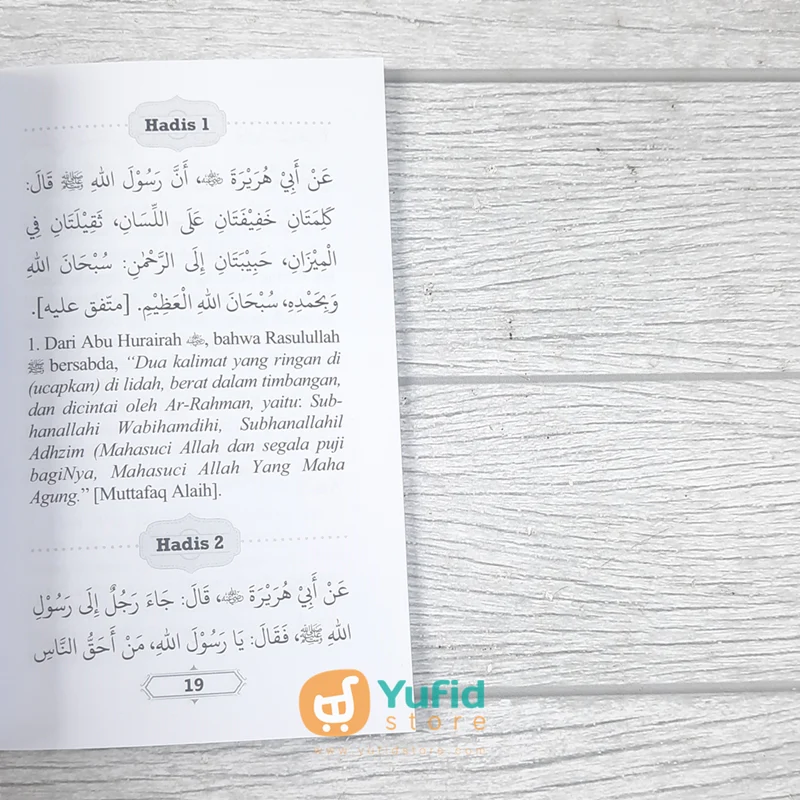 Hadis 1
عَنْ أَبِيْ هُرَيْرَةَ ﵁، أَنَّ رَسُوْلَ اللهِ ﷺ قَالَ:
كَلِمَتَانِ خَفِيْفَتَانِ عَلَى اللِّسَانِ، ثَقِيْلَتَانِ فِي
الْمِيْزَانِ، حَبِيْبَتَانِ إِلَى الرَّحْمٰنِ: سُبْحَانَ اللهِ
وَبِحَمْدِهِ، سُبْحَانَ اللهِ الْعَظِيْمِ. [متفق عليه].
1. Dari Abu Hurairah ﵁, bahwa Rasulullah
ﷺ bersabda, “Dua kalimat yang ringan di
(ucapkan) di lidah, berat dalam timbangan,
dan dicintai oleh Ar-Rahman, yaitu: Sub-
hanallahi Wabihamdihi, Subhanallahil
Adhzim (Mahasuci Allah dan segala puji
bagiNya, Mahasuci Allah Yang Maha
Agung.” [Muttafaq Alaih].
Hadis 2
عَنْ أَبِيْ هُرَيْرَةَ ﵁، قَالَ: جَاءَ رَجُلٌ إِلَى رَسُوْلِ
اللهِ ﷺ، فَقَالَ: يَا رَسُوْلَ اللهِ، مَنْ أَحَقُّ النَّاسِ
19
Yufid
store
www.yufidstore.com